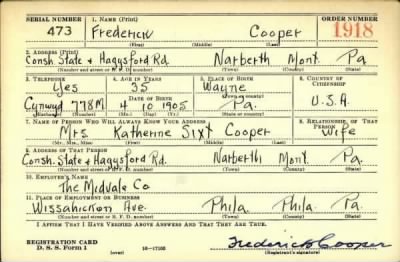 SERIAL NUMBER 1. NAME (Print) ORDER NUMBER
473 Frederick Cooper 1918
(First) (Middle) (Last)
2. ADDRESS (Print)
Consh. State & Hagysford Rd. Narberth Mont. Pa.
(Number and street or R. F. D. number) (Town) (County) (State)
3. TELEPHONE 4. AGE IN YEARS 5. PLACE OF BIRTH 6. COUNTRY OF CITIZENSHIP
Yes 35 Wayne
Cynwyd 778M DATE OF BIRTH Pa. U.S.A.
4 10 1905
(Exchange) (Number) (Mo.) (Day) (Yr.) (State or country)
7. NAME OF PERSON WHO WILL ALWAYS KNOW YOUR ADDRESS 8. RELATIONSHIP OF THAT PERSON
Mrs Katherine Sixt Cooper Wife
(Mr., Mrs., Miss) (First) (Middle) (Last)
9. ADDRESS OF THAT PERSON
Consh. State & Hagysford Rd. Narberth Mont. Pa.
(Number and street or R. F. D. number) (Town) (County) (State)
10. EMPLOYER'S NAME
The Midvale Co.
11. PLACE OF EMPLOYMENT OR BUSINESS
Wissahickon Ave. Phila. Phila. Pa.
(Number and street or R. F. D. number) (Town) (County) (State)
I AFFIRM THAT I HAVE VERIFIED ABOVE ANSWERS AND THAT THEY ARE TRUE.
REGISTRATION CARD
D. S. S. Form 1 (over) 16-17105 Frederick Cooper
(Registrant's signature)